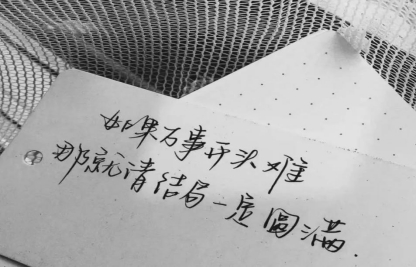 如果万事开头难
那就请结局一定圆满.